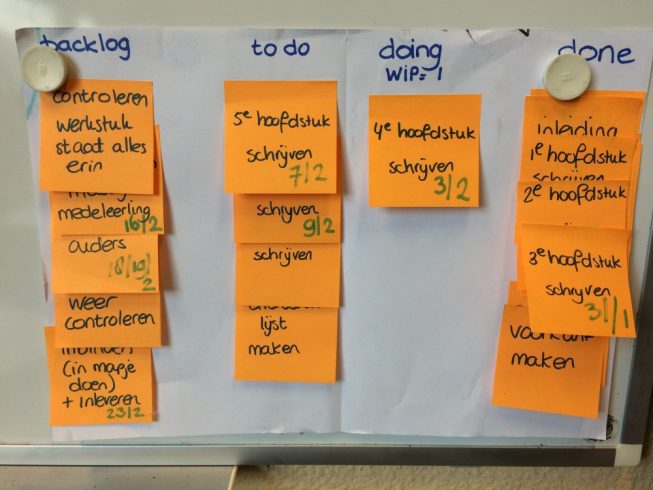 backlog
controleren
werkstuk
staat alles
erin
medeleerling
16/2
ouders
18/19/
2
weer
controleren
(in mapje
doen)
+ inleveren
23/2
to do
5e hoofdstuk
schrijven
7/2
schrijven
9/2
schrijven
lijst
maken
doing
WIP= 1
4e hoofdstuk
schrijven
3/2
done
inleiding
1e hoofdstuk
schrijven
2e hoofdstuk
3e hoofdstuk
schrijven
31/1
voorkant
maken